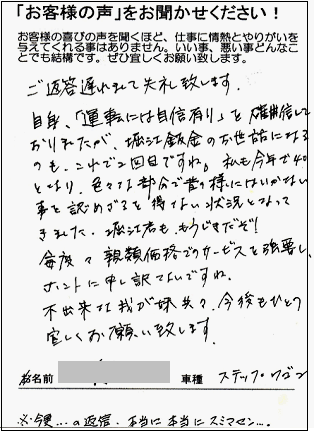 「お客様の声」をお聞かせください！
お客様の喜びの声を聞くほど、仕事に情熱とやりがいを
与えてくれる事はありません。いい事、悪い事どんなこ
とでも結構です。ぜひ宜しくお願い致します。
ご返答遅れまして失礼致します。
自身、「運転には自信有り」を確信して
おりましたが、堀江鈑金のお世話になる
のも、これで2回目ですね。私も今年で40
となり、色々な部分で昔の様にはいかない
事を認めざるを得ない状況となって
きました。堀江君も、もうじきだぞ!
毎度々親類価格でのサービスを強要し、
ホントに申し訳ないですね。
不出来な我が妹共々、今後もひとつ
宜しくお願い致します。
お名前 車種 ステップワゴン
※今更…の返信、本当に本当にスミマセン…。